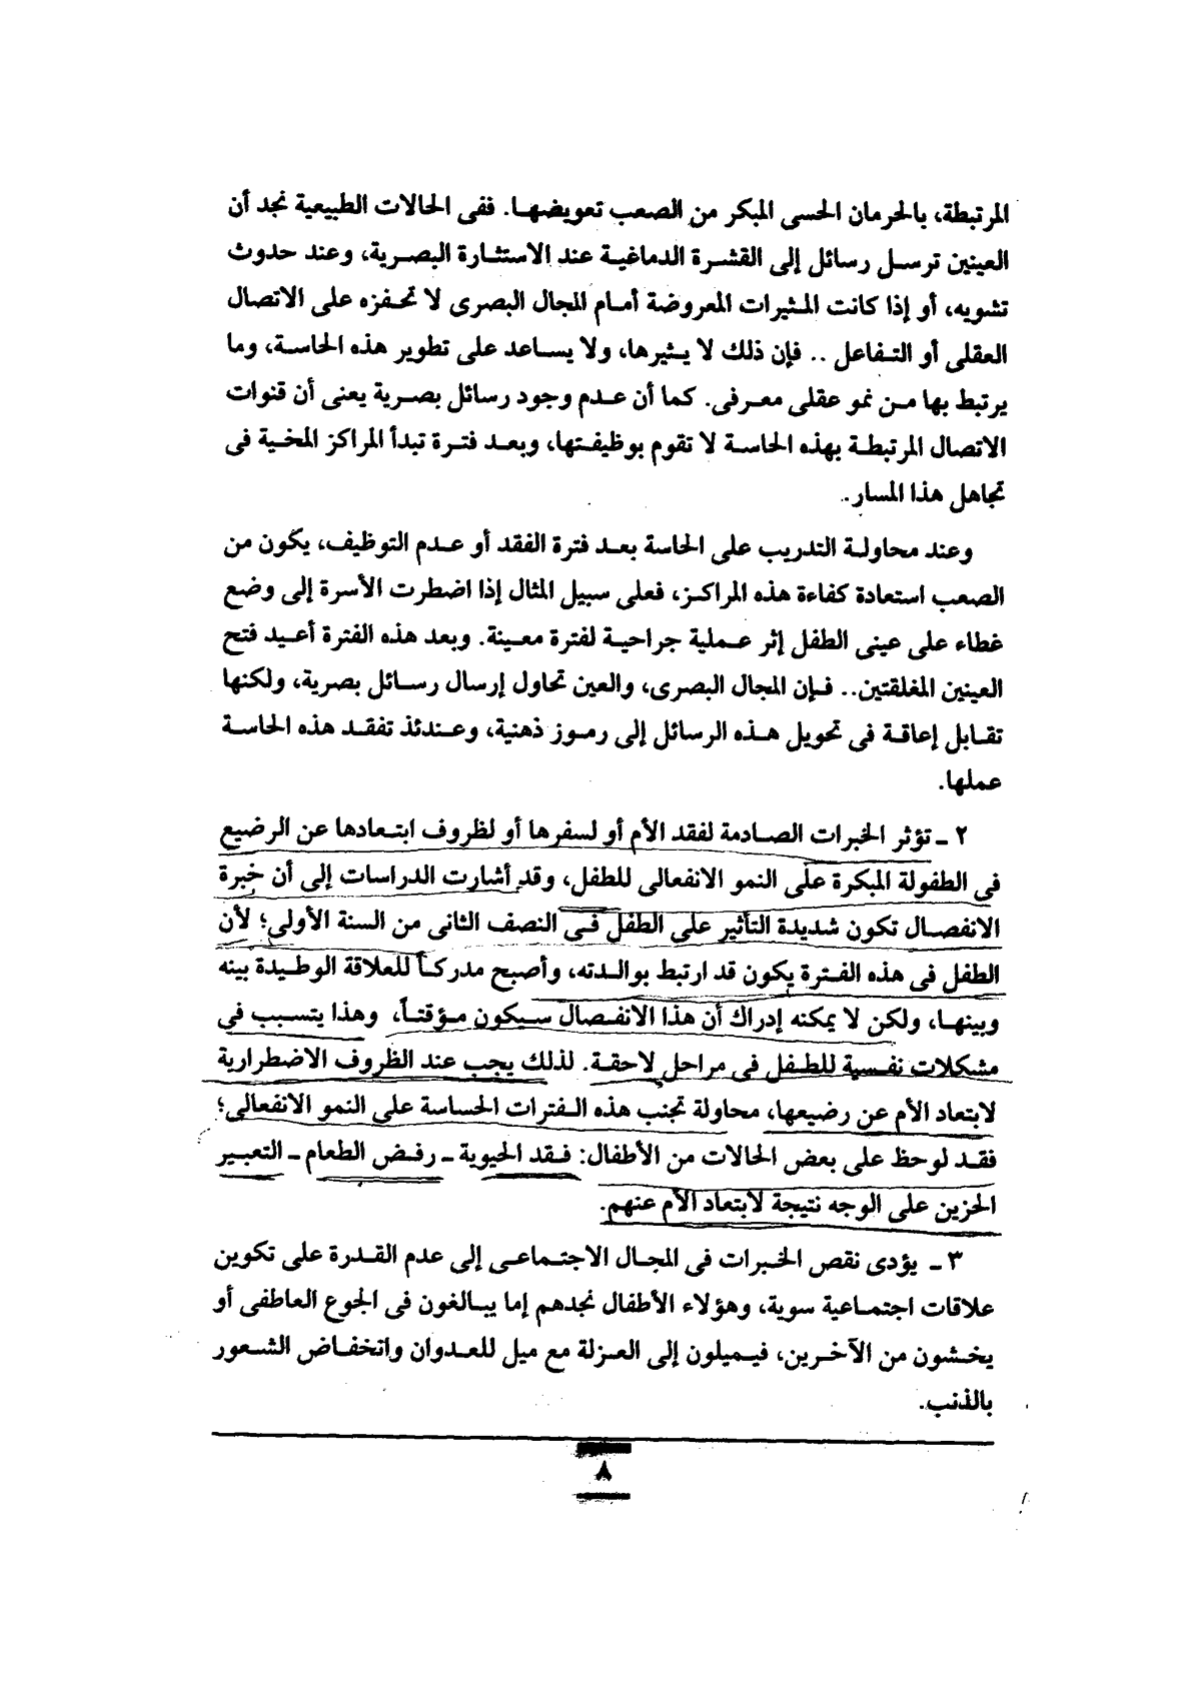 المرتبطة، بالحرمان الحسى المبكر من الصعب تعويضها. ففى الحالات الطبيعية نجد أن
العينين ترسل رسائل إلى القشرة الدماغية عند الاستثارة البصرية، وعند حدوث
تشويه، أو إذا كانت المثيرات المعروضة أمام المجال البصرى لا تحفزه على الاتصال
العقلى أو التفاعل .. فإن ذلك لا يثيرها، ولا يساعد على تطوير هذه الحاسة، وما
يرتبط بها من نمو عقلى معرفى. كما أن عدم وجود رسائل بصرية يعنى أن قنوات
الاتصال المرتبطة بهذه الحاسة لا تقوم بوظيفتها، وبعد فترة تبدأ المراكز المخية فى
تجاهل هذا المسار.
وعند محاولة التدريب على الحاسة بعد فترة الفقد أو عدم التوظيف، يكون من
الصعب استعادة كفاءة هذه المراكز، فعلى سبيل المثال إذا اضطرت الأسرة إلى وضع
غطاء على عينى الطفل إثر عملية جراحية لفترة معينة. وبعد هذه الفترة أعيد فتح
العينين المغلقتين.. فإن المجال البصرى، والعين تحاول إرسال رسائل بصرية، ولكنها
تقابل إعاقة فى تحويل هذه الرسائل إلى رموز ذهنية، وعندئذ تفقد هذه الحاسة
عملها.
٢ ـ تؤثر الخبرات الصادمة لفقد الأم أو لسفرها أو لظروف ابتعادها عن الرضيع
فى الطفولة المبكرة على النمو الانفعالى للطفل، وقد أشارت الدراسات إلى أن خبرة
الانفصال تكون شديدة التأثير على الطفل فى النصف الثانى من السنة الأولى؛ لأن
الطفل فى هذه الفترة يكون قد ارتبط بوالدته، وأصبح مدركاً للعلاقة الوطيدة بينه
وبينها، ولكن لا يمكنه إدراك أن هذا الانفصال سيكون مؤقتاً، وهذا يتسبب في
مشكلات نفسية للطفل فى مراحل لاحقة. لذلك يجب عند الظروف الاضطرارية
لابتعاد الأم عن رضيعها، محاولة تجنب هذه الفترات الحساسة على النمو الانفعالى؛
فقد لوحظ على بعض الحالات من الأطفال: فقد الحيوية ـ رفض الطعام ـ التعبير
الحزين على الوجه نتيجة لابتعاد الأم عنهم.
٣ ـ يؤدى نقص الخبرات فى المجال الاجتماعى إلى عدم القدرة على تكوين
علاقات اجتماعية سوية، وهؤلاء الأطفال نجدهم إما يبالغون فى الجوع العاطفى أو
يخشون من الآخرين، فيميلون إلى العزلة مع ميل للعدوان وانخفاض الشعور
بالذنب.
٨